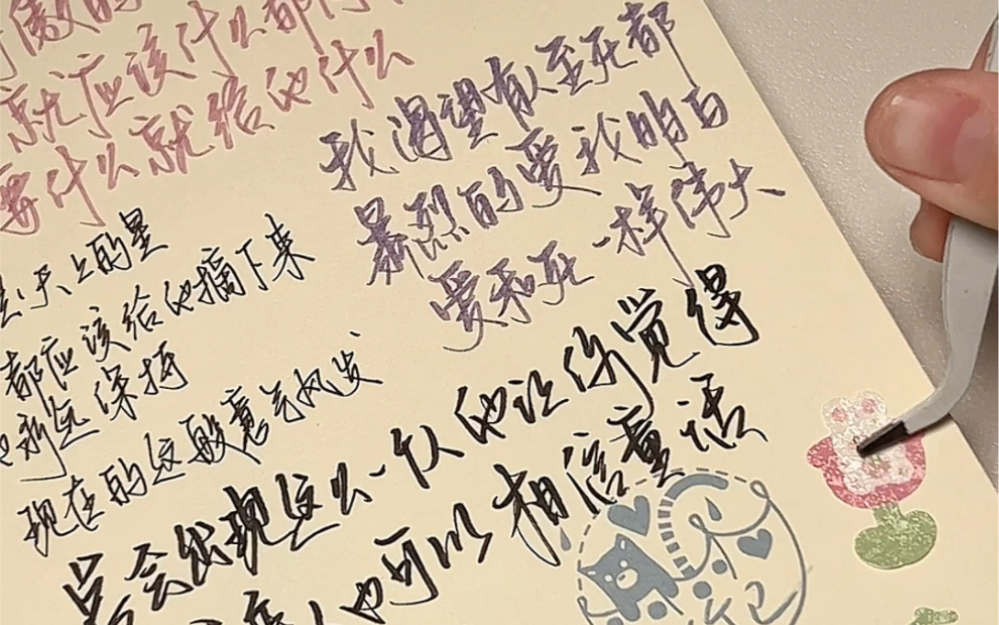 傲的
就应该什么都
要什么就给他什么
天上的星
都应该给他摘下来
永远保持
现在的这般意气风发
我渴望有人至死都
暴烈的爱我明白
爱和死一样伟大
总会出现这么一个人他让你觉得
人也可以相信童话